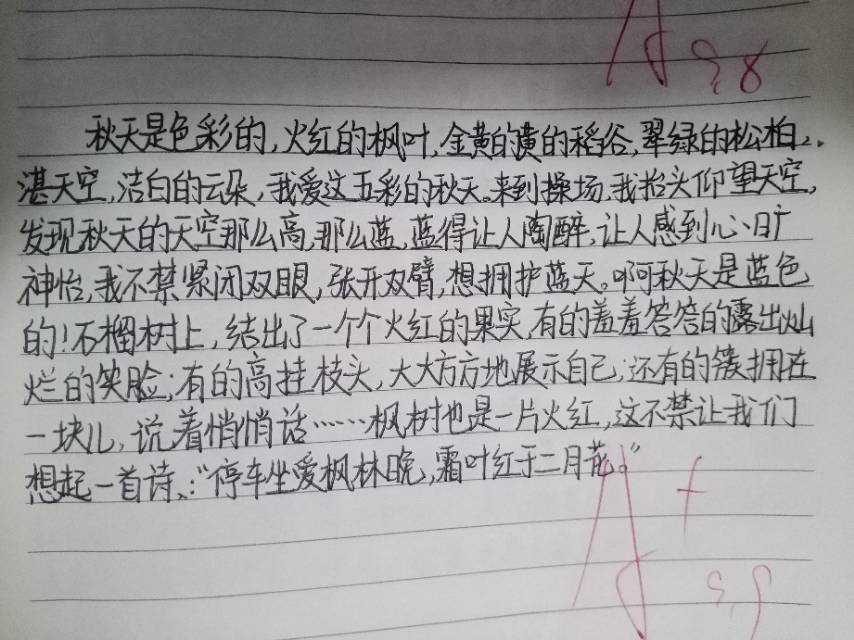 A 9.8
秋天是色彩的,火红的枫叶,金黄的黄的稻谷,翠绿的松柏,
湛天空,洁白的云朵,我爱这五彩的秋天。来到操场,我抬头仰望天空,
发现秋天的天空那么高,那么蓝,蓝得让人陶醉,让人感到心旷
神怡,我不禁紧闭双眼,张开双臂,想拥护蓝天。啊秋天是蓝色
的!石榴树上,结出了一个个火红的果实,有的羞羞答答的露出灿
烂的笑脸;有的高挂枝头,大大方方地展示自己;还有的簇拥在
一块儿,说着悄悄话……枫树也是一片火红,这不禁让我们
想起一首诗、:“停车坐爱枫林晚,霜叶红于二月花。”
A+
9.9